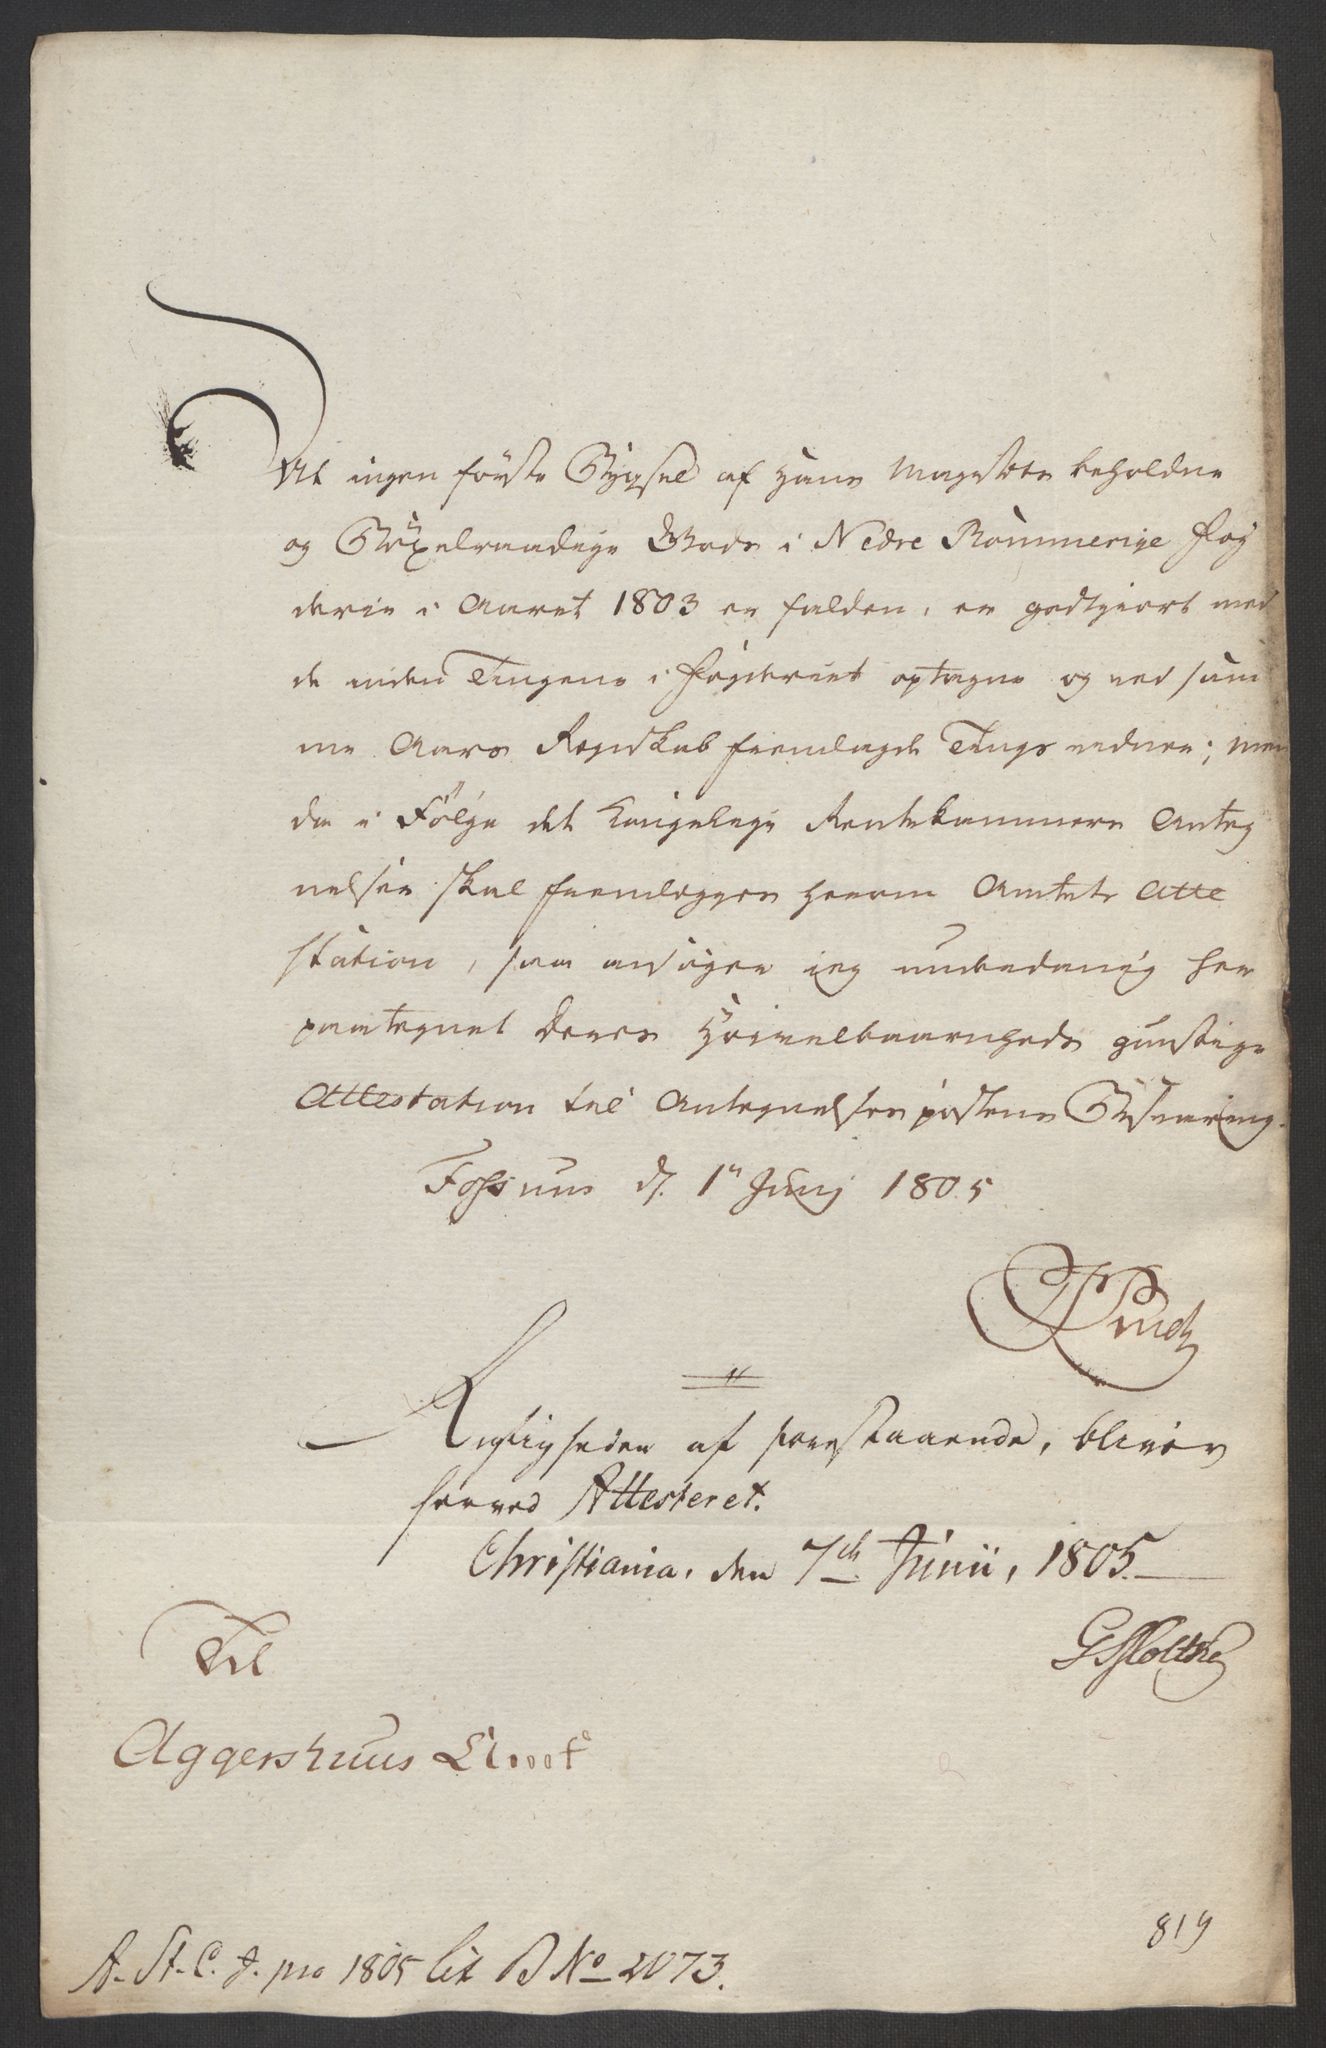 At ingen første Bÿgsel af Hans Majestets beholdne
og Bÿxelraadige Gods i Nedre Rommerige Fog
derie i Aaret 1803 er falden, er godtgiort med
de inden Tingene i Fogderiet optagne og ved sam
me Aars Regnskab fremlagde Tingsvidner; men
da i Følge det Kongelige Rentekammers Anteg
nelser skal fremlægges herom Amtets Atte
station, saa ansøger ieg underdanig her
paategnet Deres Høivelbaarnheds gunstige
Attestation til Antegnelses postens Besvaring.
Fossum d. 1te Junj 1805
Rigtigheden af forestaaende, bliver
herved Attesteret.
Christiania, den 7de Junii, 1805.
G Moltke
Til
Aggershuus Amt
A. St. C. J. pro 1805 lit B No 2073.
819